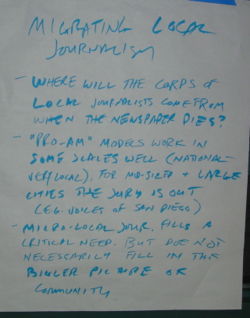 MIGRATING LOCAL
JOURNALISM
- WHERE WILL THE CORPS OF
LOCAL JOURNALISTS COME FROM
WHEN THE NEWSPAPER DIES?
- "PRO-AM" MODELS WORK IN
SOME SCALES WELL (NATIONAL -
VERY LOCAL). FOR MID-SIZED + LARGE
CITIES THE JURY IS OUT
(EG. VOICES OF SAN DIEGO)
- MICRO-LOCAL JOUR. FILLS A
CRITICAL NEED. BUT DOE NOT
NECESSARILY FILL IN THE
BIGGER PICTURE OF
COMMUNITY